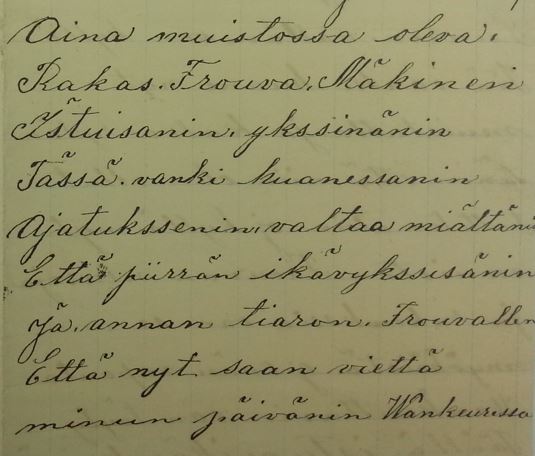 Aina muistossa oleva.
Rakas. Frouva. Mäkinen
Istuisanin. ykssinänin
Tässä. vanki huanessanin
Ajatukssenin, valtaa miältäni
Että piirrän ikävykssisänin
Jä. annan tiaron. Frouvallen
Että nyt saan viettä
minun päivänin Wankeurissa